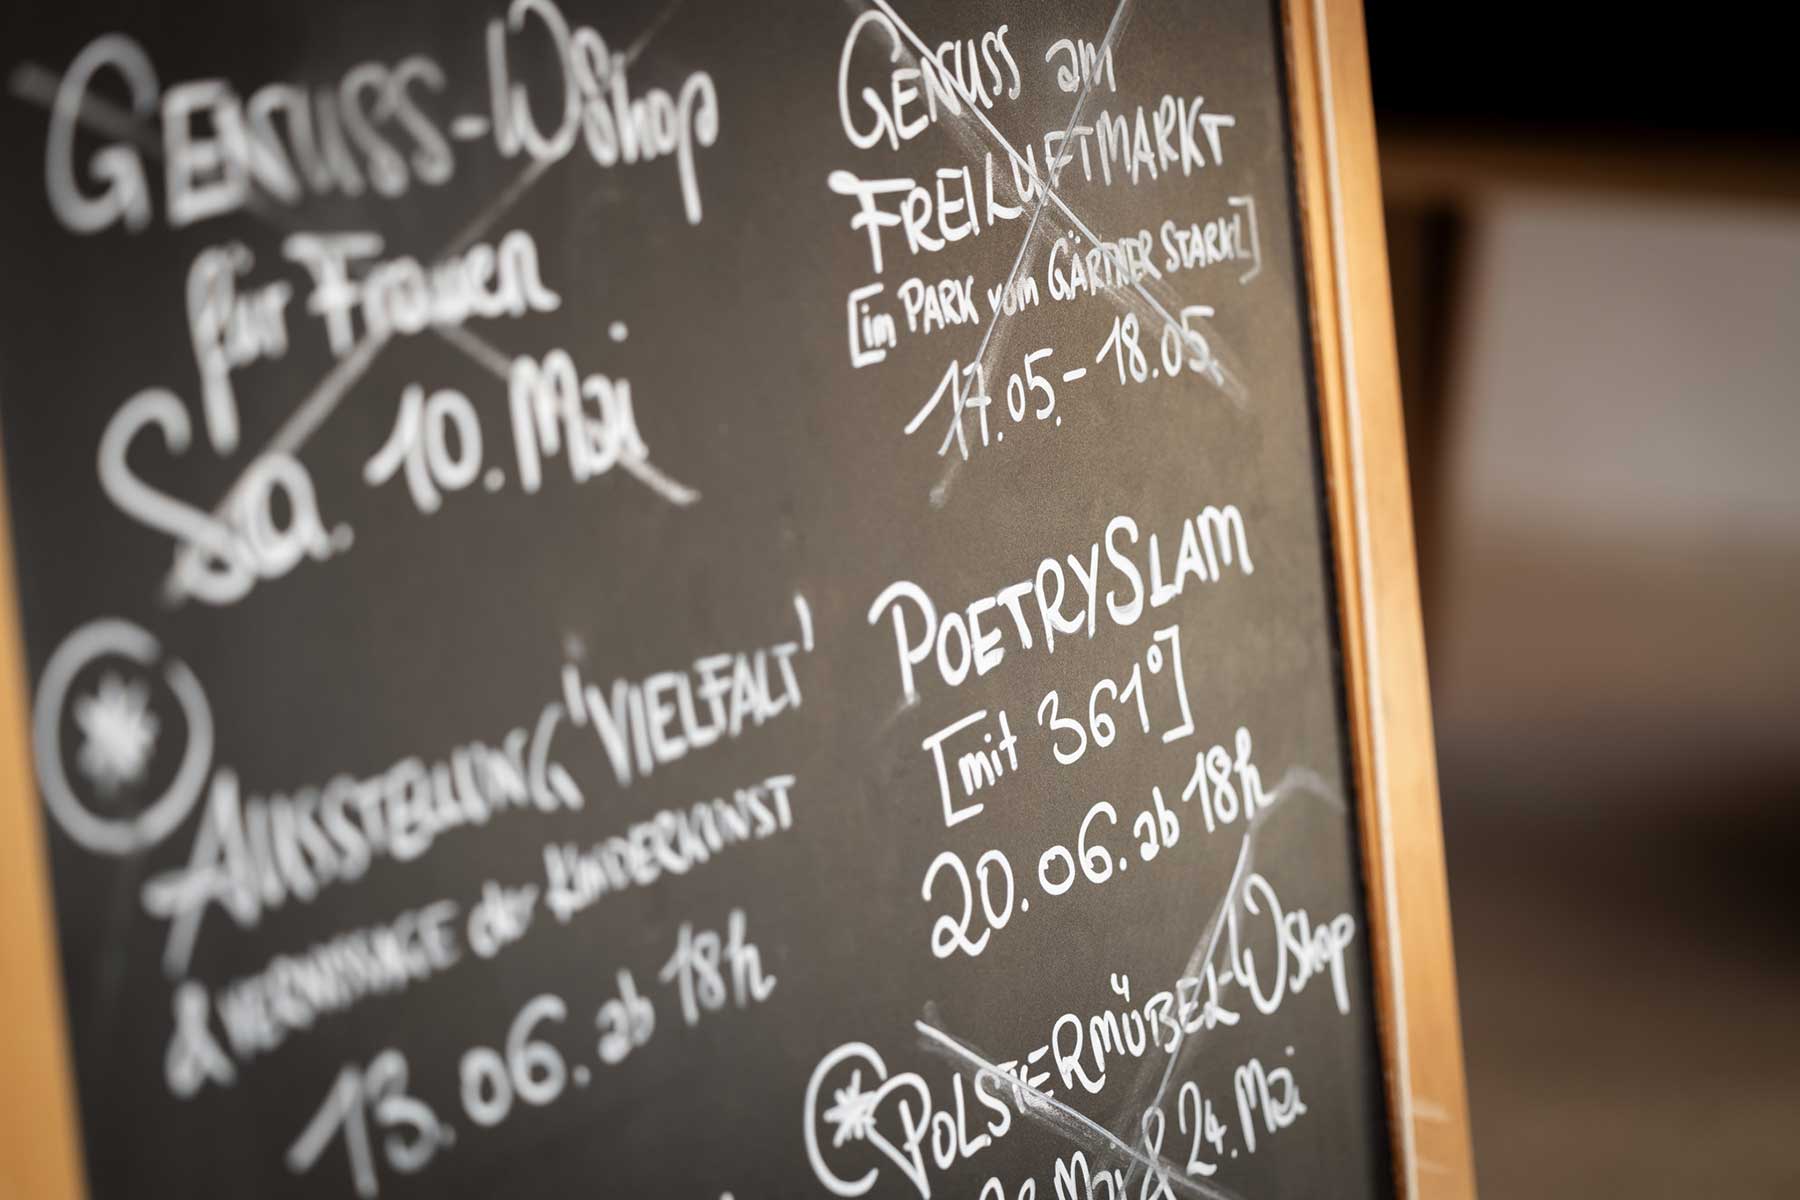 GENUSS-WShop
für Frauen
Sa. 10. Mai
AUSSTELLUNG 'VIELFALT'
& VERNISSAGE der KINDERKUNST
13.06. ab 18h
GENUSS am
FREILUFTMARKT
[im PARK vom GÄRTNER STARKL]
17.05.-18.05.
POETRYSLAM
[mit 361°]
20.06. ab 18h
POLSTERMÖBEL-WShop
Mai & 24. Mai